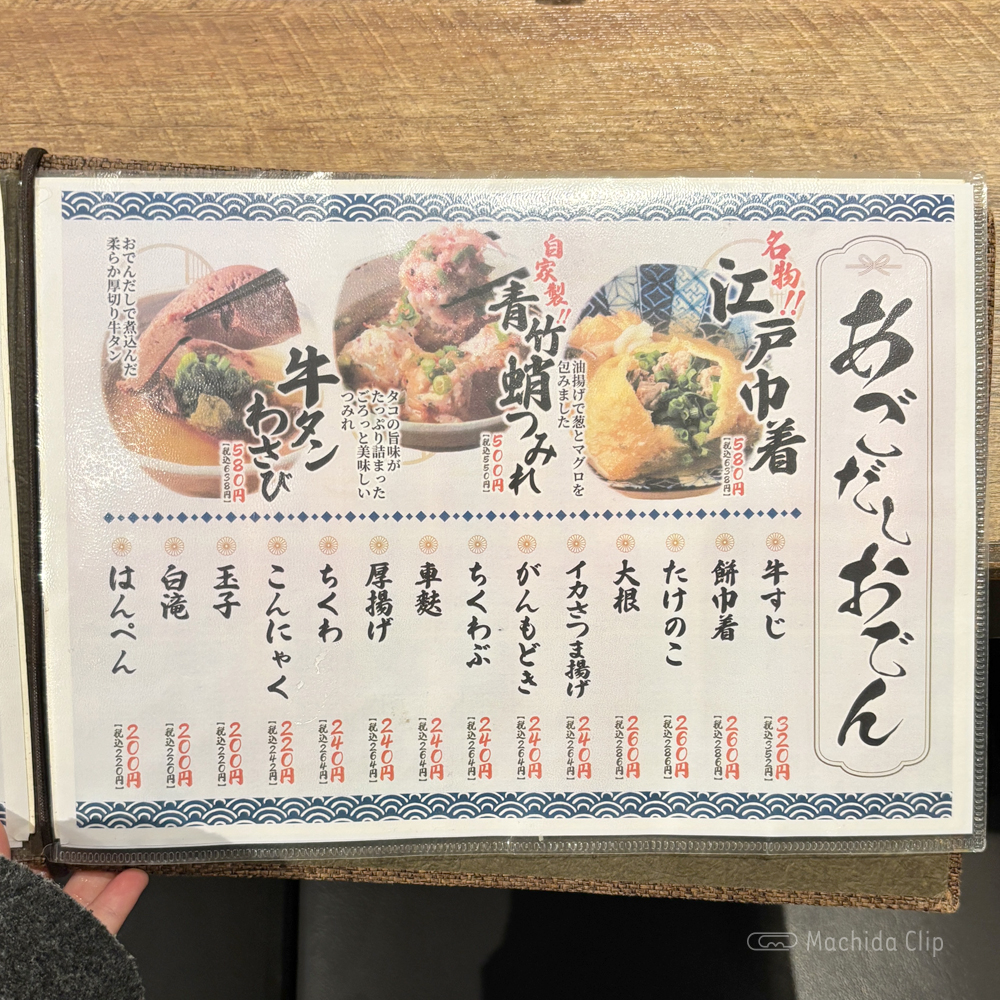 あべこだしおでん
名物!!
江戸巾着
580円
【税込638円】
油揚げで葱とマグロを
包みました
自家製!!
青竹蛸つみれ
500円
【税込550円】
タコの旨味が
たっぷり詰まった
ごろっと美味しい
つみれ
牛タン
わさび
580円
【税込638円】
おでんだしで煮込んだ
柔らか厚切り牛タン
牛すじ
320円
【税込352円】
餅巾着
260円
【税込286円】
たけのこ
260円
【税込286円】
大根
260円
【税込286円】
イカさつま揚げ
240円
【税込264円】
がんもどき
240円
【税込264円】
ちくわぶ
240円
【税込264円】
車麩
240円
【税込264円】
厚揚げ
240円
【税込264円】
ちくわ
240円
【税込264円】
こんにゃく
220円
【税込242円】
玉子
200円
【税込220円】
白滝
200円
【税込220円】
はんぺん
200円
【税込220円】
Machida Clip